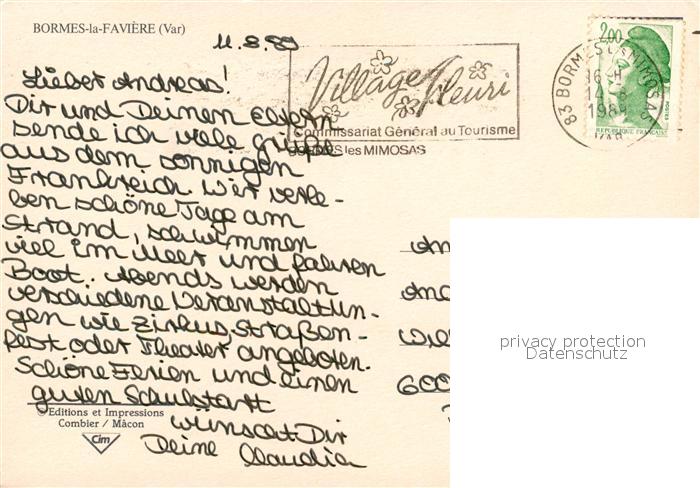 BORMES-la-FAVIÈRE (Var)
11.8.89
Lieber Andreas!
Dir und Deinen Eltern
sende ich viele Grüße
aus dem sonnigen
Frankreich. Wir verle-
ben schöne Tage am
Strand, schwimmen
viel im Meer und fahren
Boot. Abends werden
verschiedene Veranstaltun-
gen wie Zirkus, Straßen-
fest oder Theater angeboten.
Schöne Ferien und einen
guten Schulstart
wünscht Dir
Deine Claudia
© Editions et Impressions
Combier / Mâcon
Cim
Village Fleuri
Commissariat Général au Tourisme
BORMES les MIMOSAS
2,00
POSTES
REPUBLIQUE FRANÇAISE
83 BORMES LES MIMOSAS
16 H
14-8
1989
VAR
An
And
Will
600
privacy protection
Datenschutz